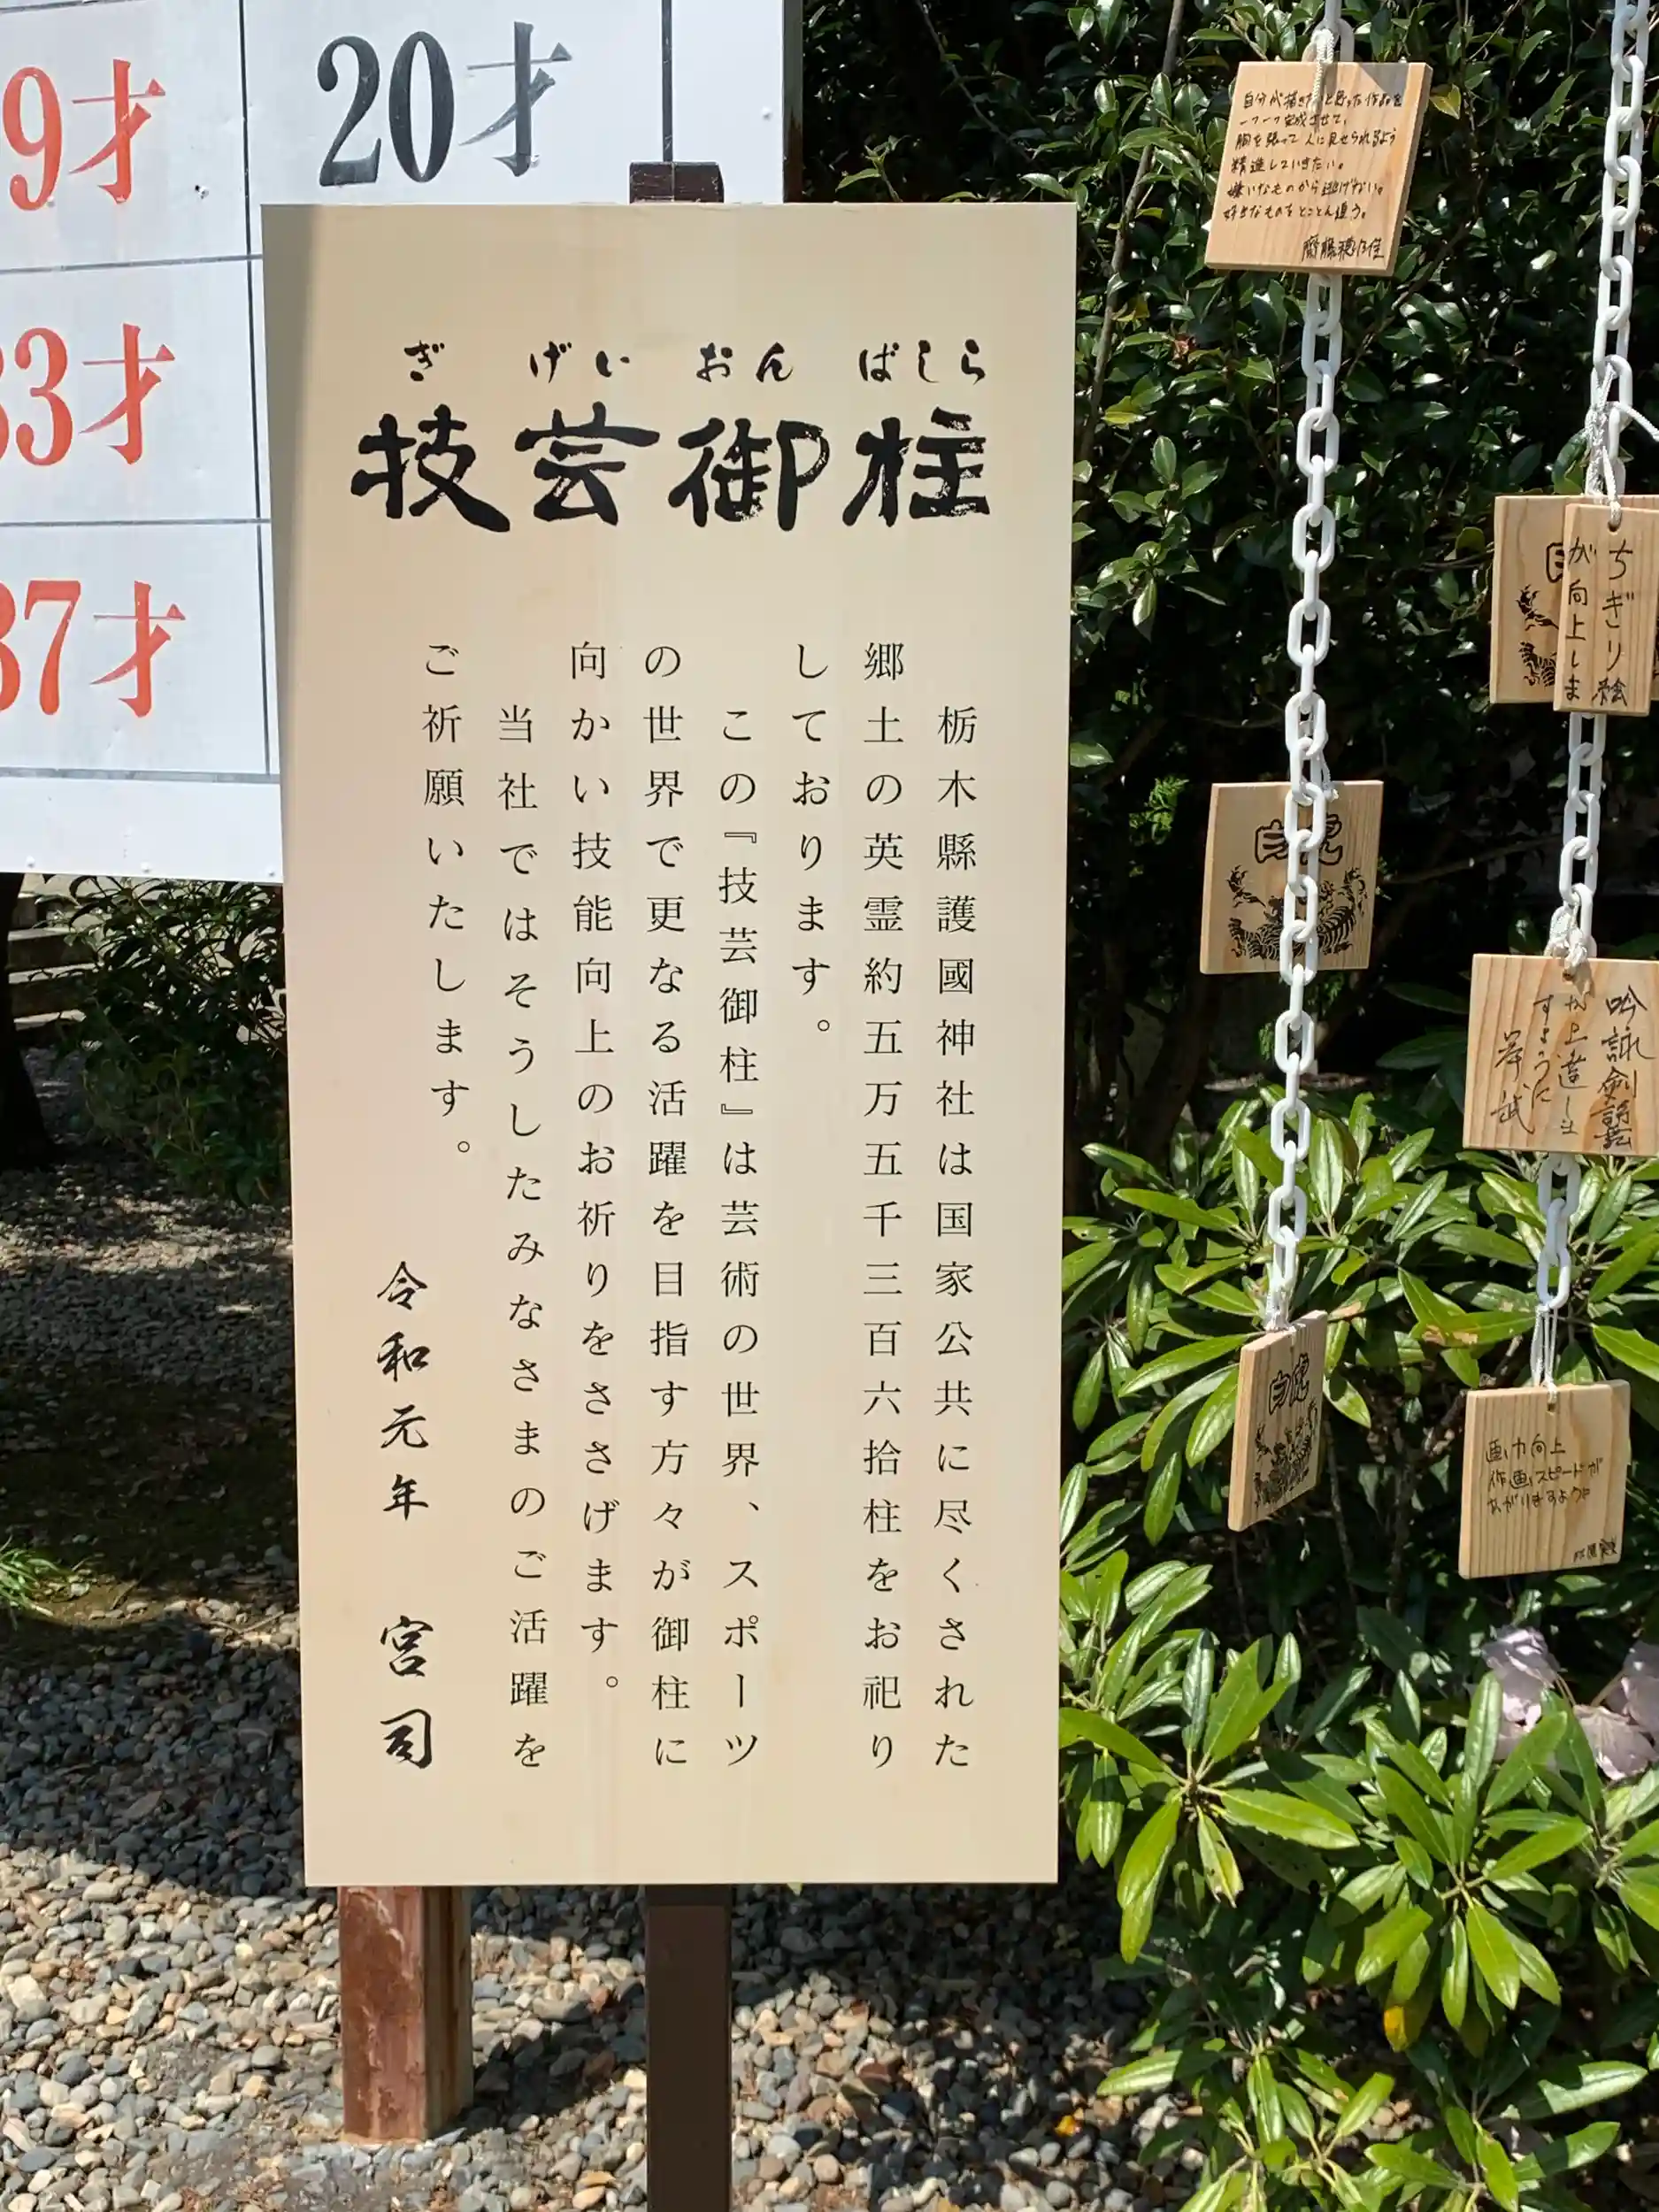 9才
20才
33才
37才
ぎ げい おん ばしら
技芸御柱
栃木縣護國神社は国家公共に尽くされた
郷土の英霊約五万五千三百六拾柱をお祀り
しております。
この『技芸御柱』は芸術の世界、スポーツ
の世界で更なる活躍を目指す方々が御柱に
向かい技能向上のお祈りをささげます。
当社ではそうしたみなさまのご活躍を
ご祈願いたします。
令和元年 宮司
自分が描きたいと思った作品を
一つ一つ完成させて、
胸を張って人に見せられるよう
精進していきたい。
嫌いなものから逃げない。
好きなものをとことん追う。
ちぎり絵
が向上しま
白虎
吟詠剣詩舞
が上達しま
すように
白虎
画力向上
作画スピードが
あがりますように